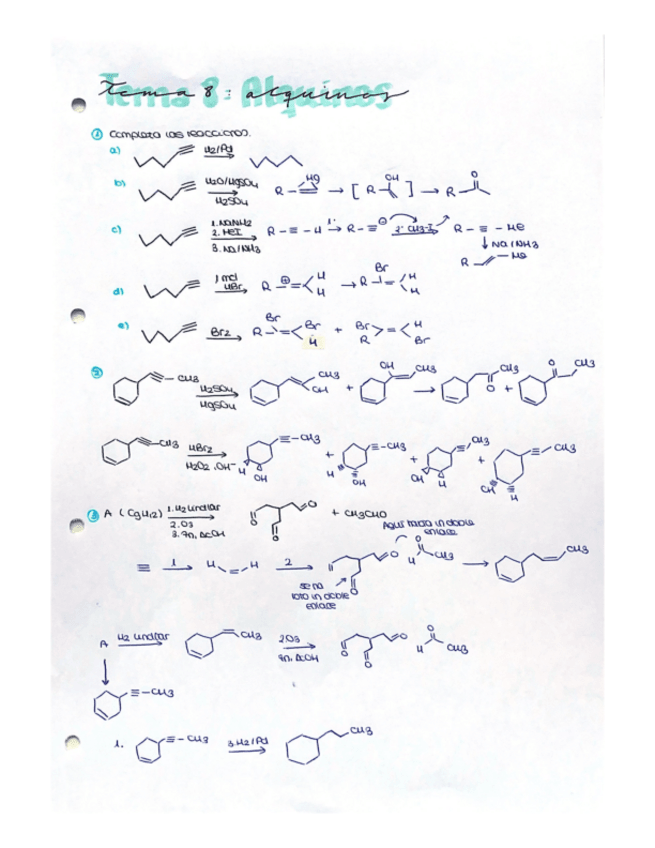 Tema 8: Alquinos
① Completa las reacciones.
a) H2/Pd
b) H2O/HgSO4 H2SO4 R Hg → [ R OH ] → R O
c) 1. NaNH2 2. MeI 3. Na/NH3 R - ≡ - H 1. → R - ≡ ⊖ 2. CH3-I → R - ≡ - Me
↓ Na/NH3
R Me
d) 1 mol HBr R ⊕ = H H → R Br H H
e) Br2 R Br Br H + Br R = H Br
② CH3 H2SO4 HgSO4 CH3 OH + OH CH3 → CH3 O + O CH3
CH3 HBr2 H2O2, OH- ≡-CH3 H OH + ≡-CH3 H OH + CH3 OH H + CH3 OH H
③ A (C9H12) 1. H2 Lindlar 2. O3 3. Zn, AcOH O O O + CH3CHO
Aquí había un doble enlace
≡ 1 → H = H 2 → O O H O CH3 → CH3
se ha roto un doble enlace
A H2 Lindlar → CH3 2 O3 Zn, AcOH → O O O H O CH3
↓
≡-CH3
1. ≡-CH3 3. H2/Pd → CH3